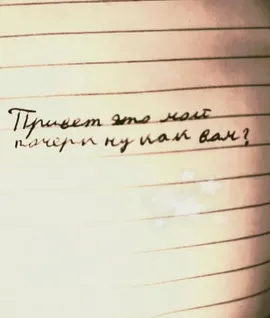 Привет это мой
почерк ну как вам?